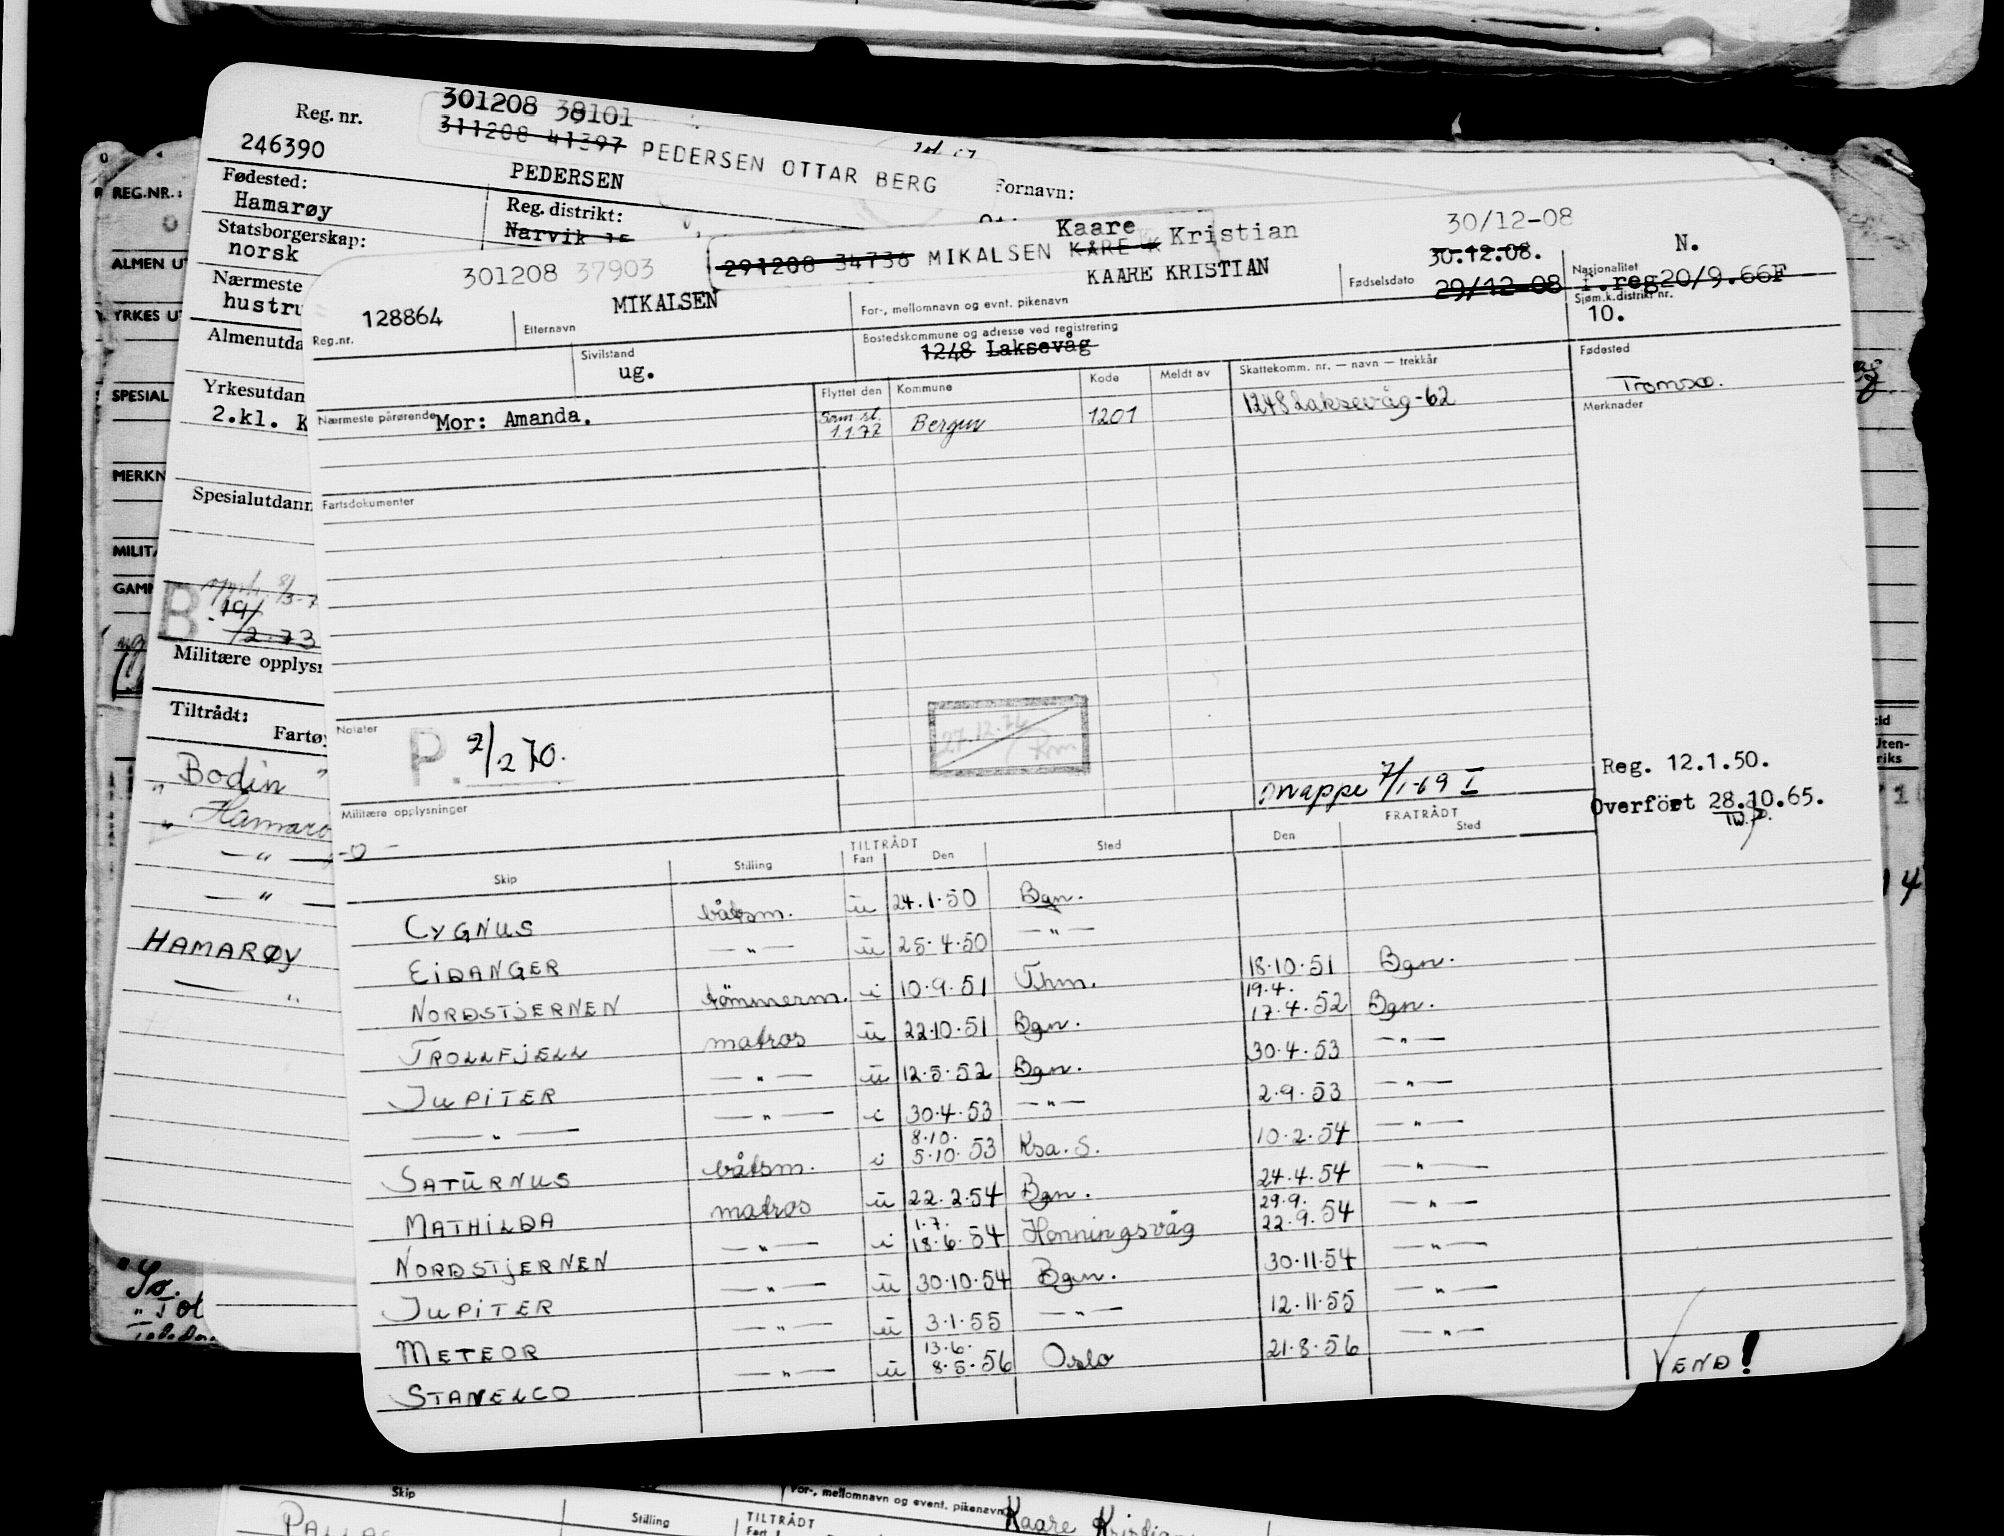 Reg. nr.
301208 38101
311208 41397 PEDERSEN OTTAR BERG
246390
PEDERSEN
Fornavn:
Fødested:
Hamarøy
Reg. distrikt:
Narvik
Statsborgerskap:
norsk
Nærmeste
hustru
Almenutda
Yrkesutdan
2.kl. K
Spesialutdann
B
19/
/2-73
Militære opplysn
Tiltrådt:
Fartøy
Bodin "
" Hamarø
— " —
— " —
HAMARØY
— "
REG.NR.:
ALMEN UT
YRKES UT
SPESIAL
MERKN
MILITÆ
GAMM
301208 37903
291208 34736 MIKALSEN KÅRE K
Kaare Kristian
KAARE KRISTIAN
30/12-08
30.12.08.
29/12-08
N.
Nasjonalitet
i.reg20/9.66F
128864
Reg.nr.
MIKALSEN
Etternavn
For-, mellomnavn og evnt. pikenavn
Fødselsdato
Sjøm.k.distrikt nr.
10.
Sivilstand
ug.
Bostedskommune og adresse ved registrering
1248 Laksevåg
Fødested
Tromsø.
Nærmeste pårørende
Mor: Amanda.
Flyttet den
Kommune
Kode
Meldt av
Skattekomm. nr. — navn — trekkår
Sam.st.
1.1.72
Bergen
1201
1248 Laksevåg-62
Merknader
Fartsdokumenter
Notater
P. 2/2 70.
27.12.76
Omappe 7/1-69 I
Reg. 12.1.50.
Overført 28.10.65.
Militære opplysninger
-0-
Skip
Stilling
TILTRÅDT
Fart
Den
Sted
FRATRÅDT
Den
Sted
CYGNUS båtsm. u 24.1.50 Bgn.
EIDANGER — " — u 25.4.50 — " —
NORDSTJERNEN tömmerm. i 10.9.51 Thm. 18.10.51 Bgn.
TROLLFJELL matros u 22.10.51 Bgn. 19.4. 17.4.52 Bgn.
JUPITER — " — u 12.5.52 Bgn. 30.4.53 — " —
— " — — " — i 30.4.53 — " — 2.9.53 — " —
SATURNUS båtsm. i 8.10. 5.10.53 Ksa. S. 10.2.54 — " —
MATHILDA matros u 22.2.54 Bgn. 24.4.54 — " —
NORDSTJERNEN — " — i 1.7. 18.6.54 Honningsvåg 29.9. 22.9.54 — " —
JUPITER — " — u 30.10.54 Bgn. 30.11.54 — " —
METEOR — " — u 3.1.55 — " — 12.11.55 — " —
STANELCO — " — u 13.6. 8.5.56 Oslo 21.8.56 — " —
VEND!
Skip
Stilling
TILTRÅDT
For-, mellomnavn og event. pikenavn
Kaare Kristian